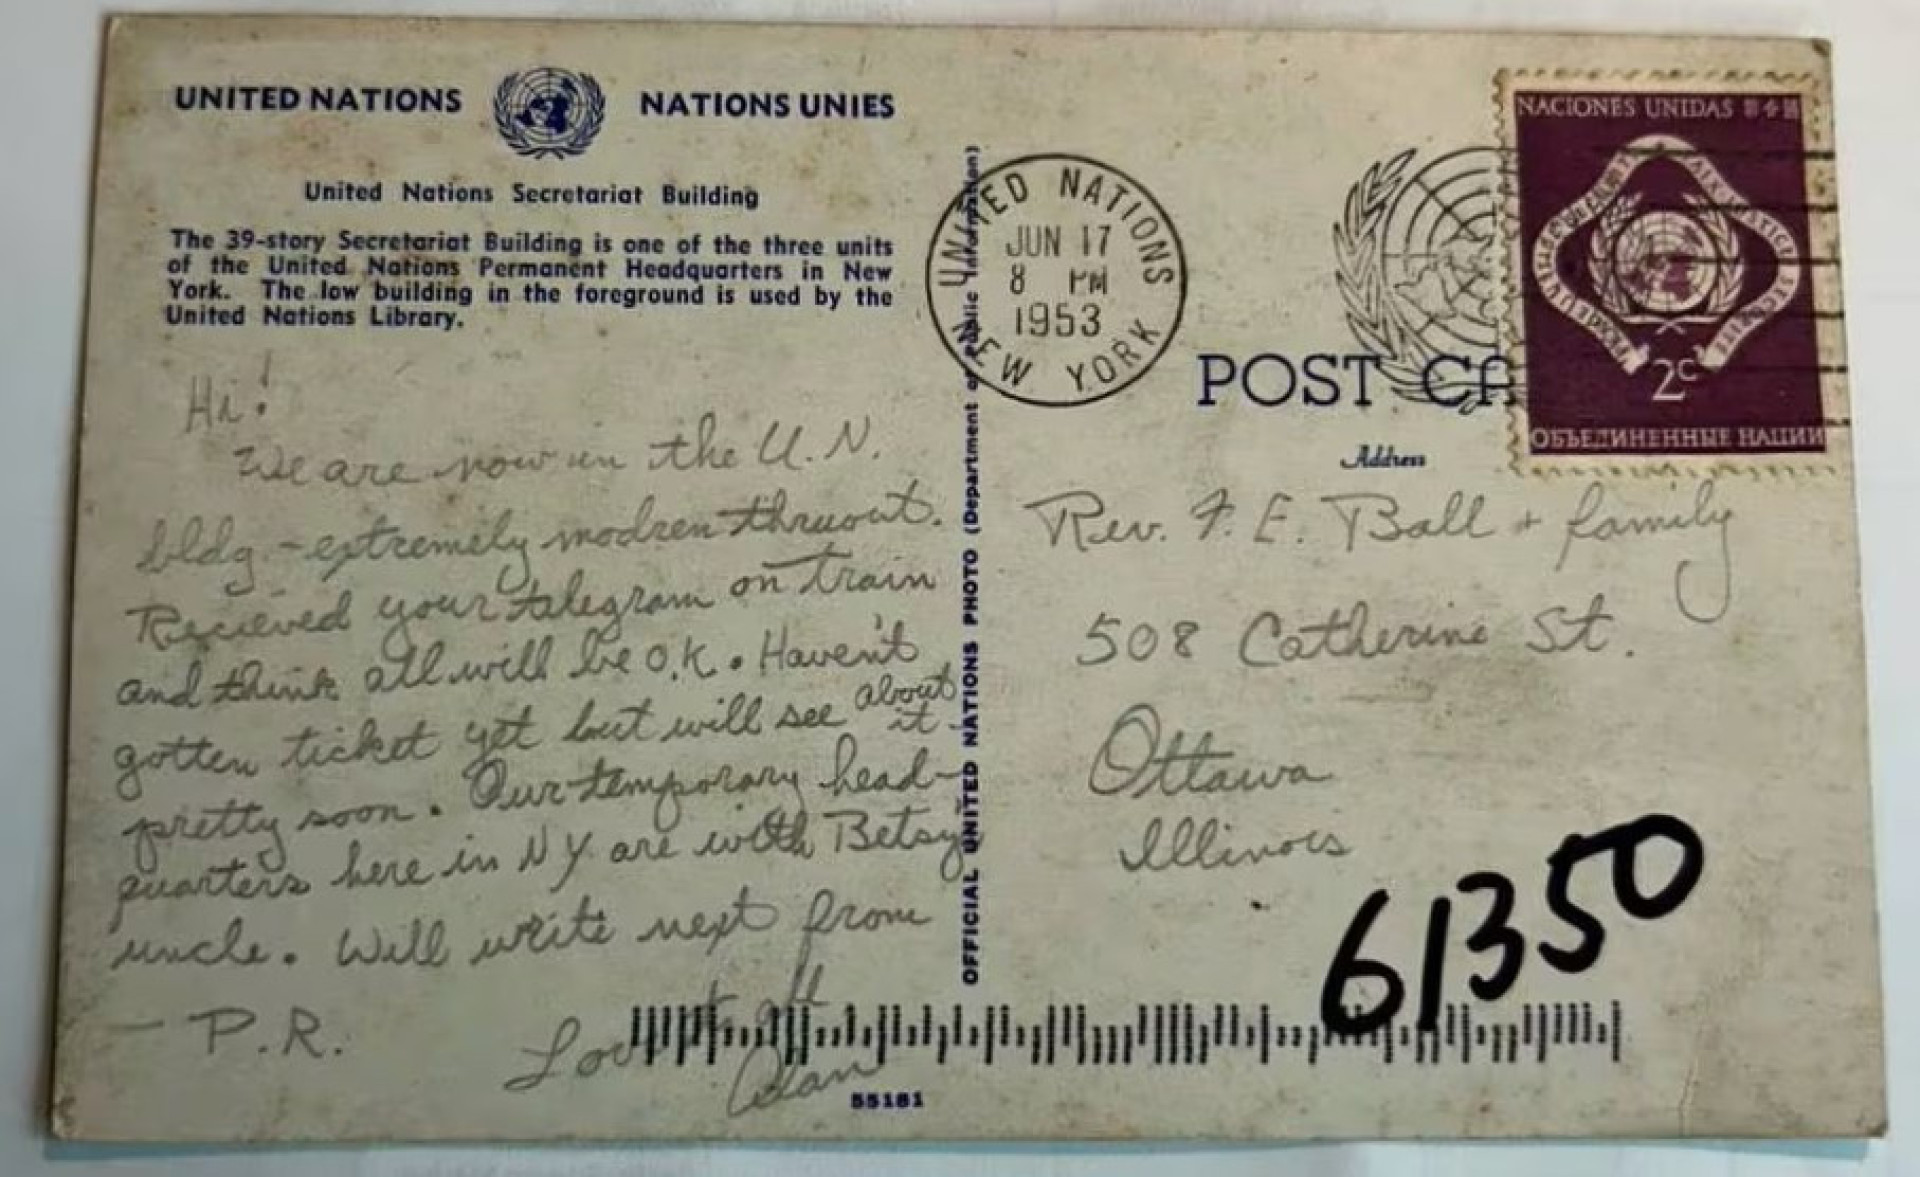 UNITED NATIONS NATIONS UNIES
United Nations Secretariat Building
The 39-story Secretariat Building is one of the three units
of the United Nations Permanent Headquarters in New
York. The low building in the foreground is used by the
United Nations Library.
Hi!
We are now in the U.N.
bldg - extremely modren thruout.
Recieved your telegram on train
and think all will be O.K. Haven't
gotten ticket yet but will see about it
pretty soon. Our temporary head-
quarters here in NY are with Betsy
uncle. Will write next from
- P.R.
Love to all
Alan
55181
OFFICIAL UNITED NATIONS PHOTO (Department of Public Information)
UNITED NATIONS
JUN 17
8 PM
1953
NEW YORK
POST CA
Address
NACIONES UNIDAS
2c
ОБЪЕДИНЕННЫЕ НАЦИИ
Rev. F. E. Ball + family
508 Catherine St.
Ottawa
Illinois
61350